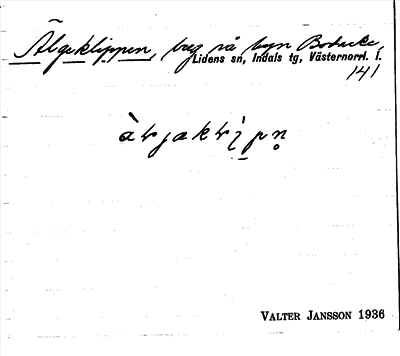 Älgaklippen, berg på byn Bodacke,
Lidens sn, Indals tg, Västernorrl. l.
141
VALTER JANSSON 1936